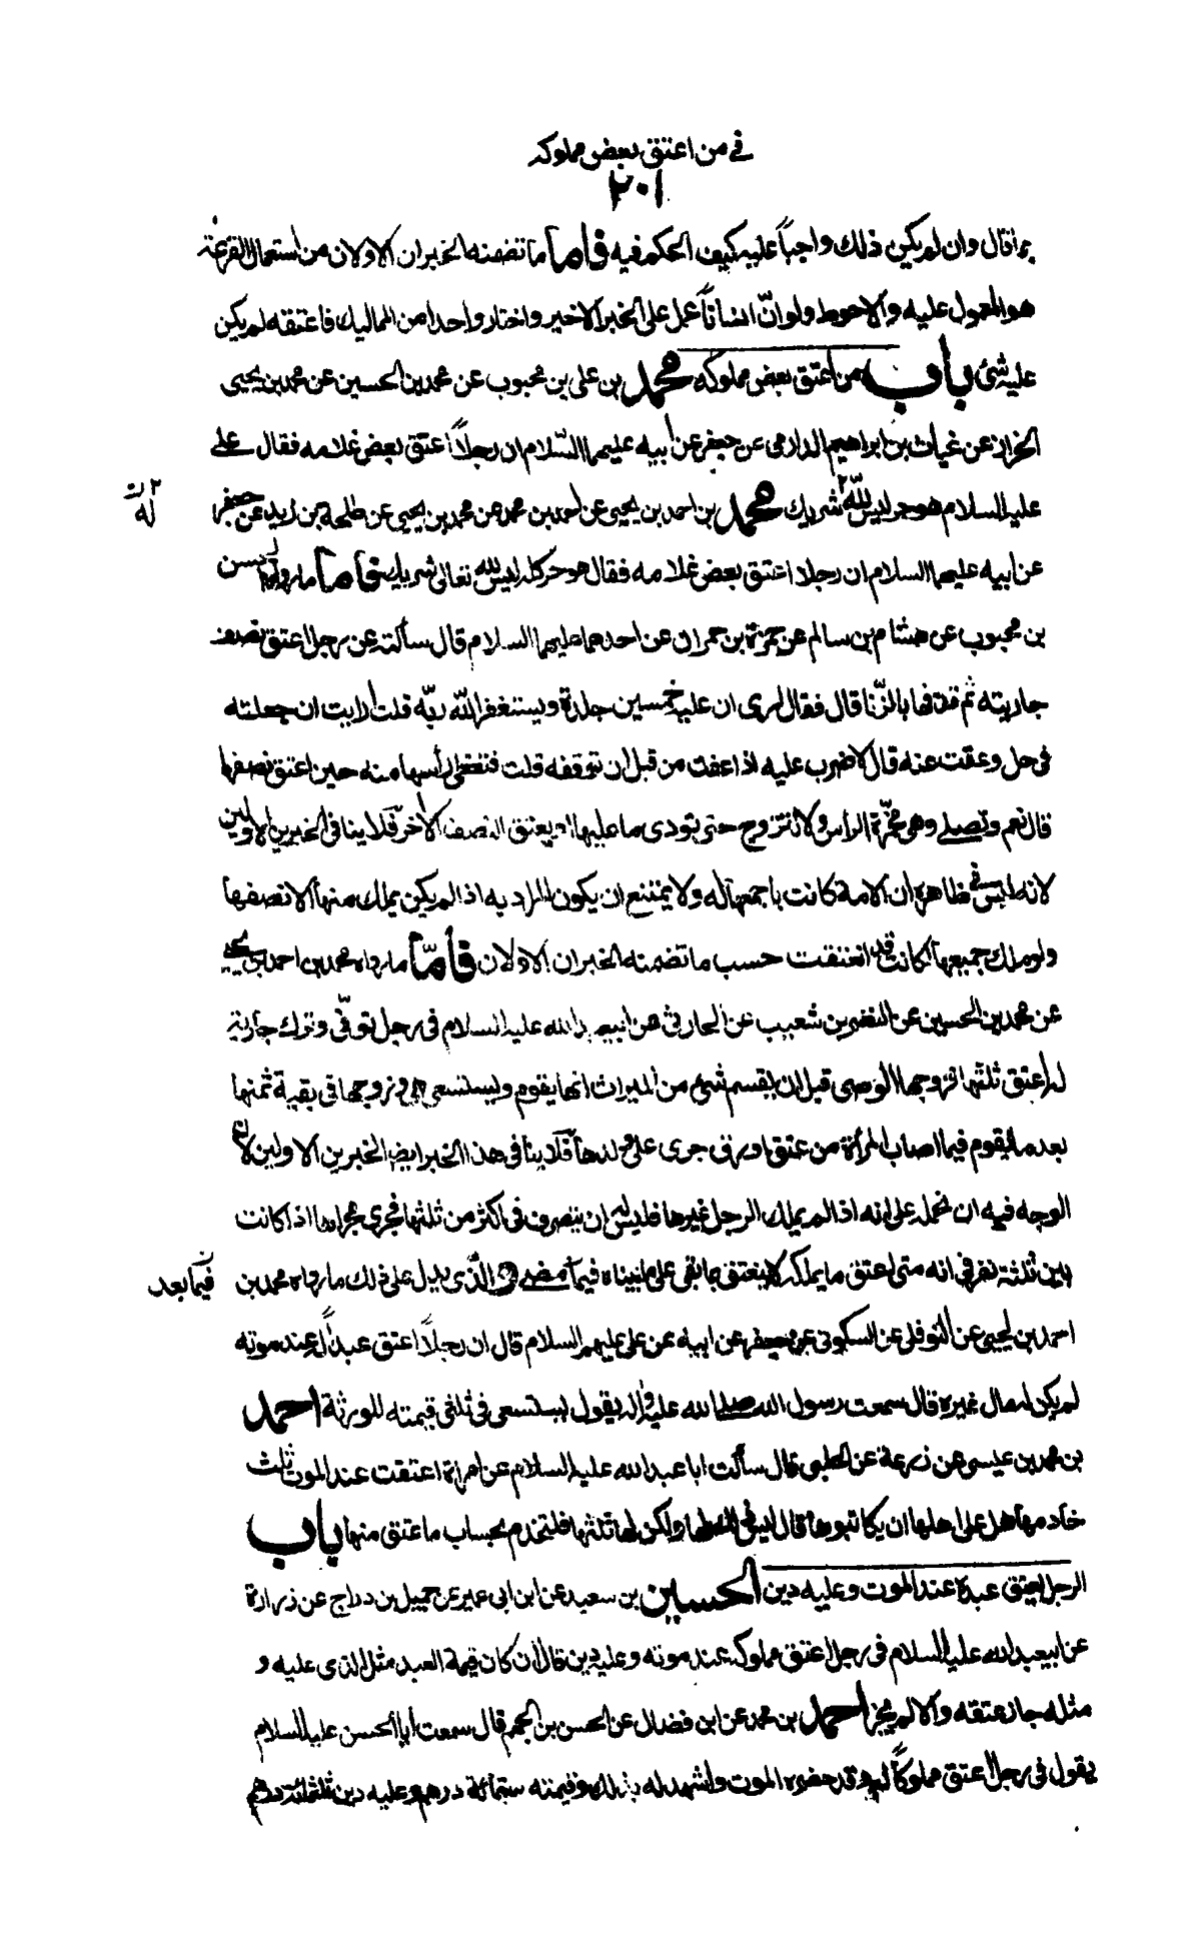 في من اعتق بعض مملوكه
٢٠١
قال وان لم يكن ذلك واجباً عليه كيف الحكم فيه فاما ما تضمنه الخبران الاولان من استعمال القرعة
هو المعمول عليه والاحوط ولو انّ انساناً عمل على الخبر الاخير واختار واحدا من المماليك فاعتقه لم يكن
عليه شئ باب من اعتق بعض مملوكه محمد بن علي بن محبوب عن محمد بن الحسين عن محمد بن يحيى
الخزاز عن غياث بن ابراهيم الدارمي عن جعفر عن ابيه عليهما السّلام ان رجلاً اعتق بعض غلامه فقال علي
عليه السلام هو حر ليس لله شريك محمد بن احمد بن يحيى عن احمد بن محمد عن محمد بن يحيى عن طلحة بن زيد عن جعفر
عن ابيه عليهما السلام ان رجلا اعتق بعض غلامه فقال هو حر كله ليس لله تعالى شريك فاما ما رواه الحسن
بن محبوب عن هشام بن سالم عن حمزة بن حمران عن احدهما عليهما السلام قال سألته عن رجل اعتق نصف
جاريته ثم قذفها بالزّنا قال فقال ارى ان عليه خمسين جلدة ويستغفر اللّه ربّه قلت ارايت ان جعلته
في حل وعفت عنه قال لا ضرب عليه اذا عفت من قبل ان توقفه قلت فتغطي رأسها منه حين اعتق نصفها
قال نعم وتصلي وهي مخمّرة الراس ولا تتزوج حتى تودى ما عليها او يعتق النصف الاخر فلا ينافى الخبرين الاولين
لانه ليس في ظاهره ان الامة كانت باجمعها له ولا يمتنع ان يكون المراد به اذا لم يكن يملك منها الا نصفها
ولو ملك جميعها لكانت قد انعتقت حسب ما تضمنه الخبران الاولان فأمّا ما رواه محمد بن احمد بن يحيى
عن محمد بن الحسين عن النضر بن شعيب عن الحارثي عن ابيعبد الله عليه السلام في رجل توفّى وترك جارية
له اعتق ثلثها فتزوجها الوصى قبل ان يقسم شئ من الميراث انها يقوم ويستسعى هي وزوجها في بقية ثمنها
بعد ما يقوم فما اصاب المرأة من عتق او رق جرى على ولدها فلا ينافى هذا الخبر ايضا الخبرين الاولين لان
الوجه فيه ان نحمله على انه اذا لم يملك الرجل غيرها فليس له ان يتصرف في اكثر من ثلثها فجرى مجراها اذا كانت
بين ثلثة نفر في انه متى اعتق ما يملكه لا ينعتق ما بقى على ما بيناه فيما مضى والّذى يدل على ذلك ما رواه محمد بن
احمد بن يحيى عن النوفلي عن السكوني عن جعفر عن ابيه عن علي عليهم السلام قال ان رجلاً اعتق عبداً له عند موته
لم يكن له مال غيره قال سمعت رسول الله صلى الله عليه واله يقول يستسعى في ثلثى قيمته للورثة احمد
بن محمد بن عيسى عن زرعة عن الحلبي قال سألت ابا عبد الله عليه السلام عن امرأة اعتقت عند الموت ثلث
خادمها هل على اهلها ان يكاتبوها قال ليس ذلك لها ولكن لها ثلثها فلتخدم بحساب ما عتق منها باب
الرجل يعتق عبده عند الموت وعليه دين الحسين بن سعيد عن ابن ابى عمير عن جميل بن دراج عن زرارة
عن ابيعبد الله عليه السلام في رجل اعتق مملوكه عند موته وعليه دين قال ان كان قيمة العبد مثل الذى عليه و
مثله جاز عتقه والا لم يجز احمد بن محمد عن ابن فضال عن الحسن بن الجهم قال سمعت ابا الحسن عليه السلام
يقول في رجل اعتق مملوكاً له وقد حضره الموت واشهد له بذلك وقيمته ستمائة درهم وعليه دين ثلثمائة درهم
له
فيما بعد